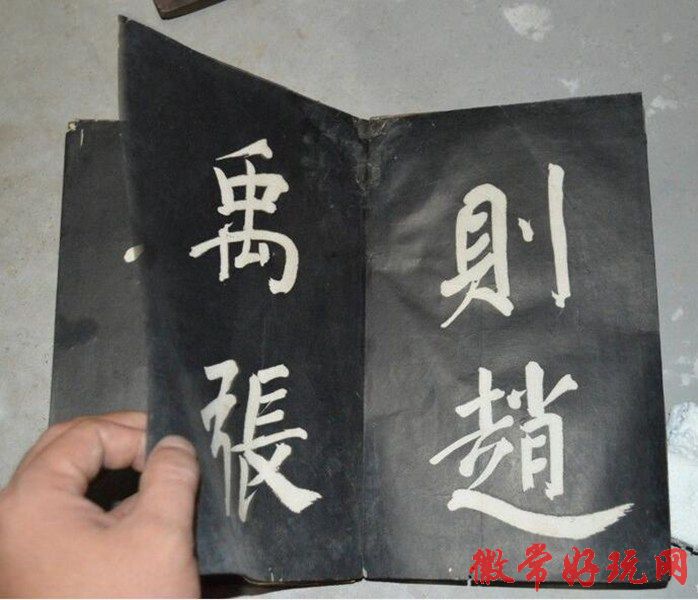 則趙
禹張
徽常好玩网